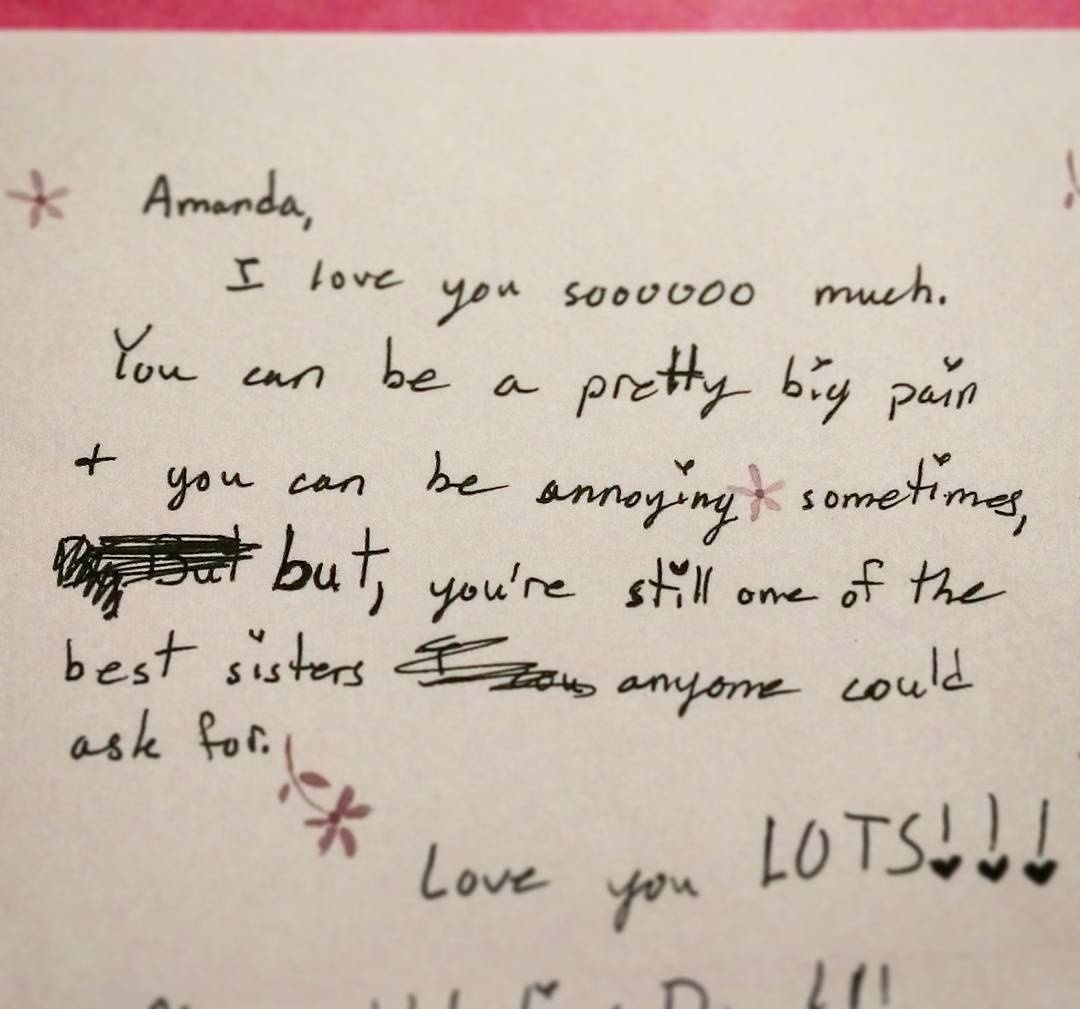 Amanda,
I love you sooooooo much.
You can be a pretty big pain
+ you can be annoying sometimes,
but, you're still one of the
best sisters anyone could
ask for.
Love you LOTS!!!